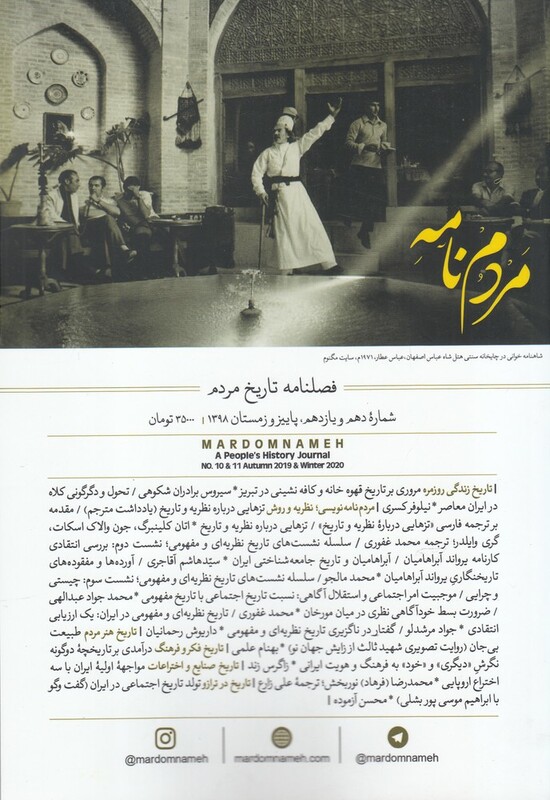 مردم نامه
شاهنامه خوانی در چایخانه سنتی هتل شاه عباس اصفهان، عباس عطار، ۱۹۷۱م، سایت مگنوم
فصلنامه تاریخ مردم
شمارهٔ دهم و یازدهم، پاییز و زمستان ۱۳۹۸ | ۳۵۰۰۰ تومان
MARDOMNAMEH
A People's History Journal
NO. 10 & 11 Autumn 2019 & Winter 2020
| تاریخ زندگی روزمره مروری بر تاریخ قهوه خانه و کافه نشینی در تبریز * سیروس برادران شکوهی / تحول و دگرگونی کلاه
در ایران معاصر * نیلوفر کسری | مردم‌نامه‌نویسی؛ نظریه و روش تزهایی درباره نظریه و تاریخ (یادداشت مترجم) / مقدمه
بر ترجمه فارسی «تزهایی دربارهٔ نظریه و تاریخ» / تزهایی درباره نظریه و تاریخ * اتان کلینبرگ، جون والاک اسکات،
گری وایلدر؛ ترجمه محمد غفوری / سلسله نشست‌های تاریخ نظریه‌ای و مفهومی؛ نشست دوم: بررسی انتقادی
کارنامه یرواند آبراهامیان / آبراهامیان و تاریخ جامعه‌شناختی ایران * سیّدهاشم آقاجری / آورده‌ها و مفقوده‌های
تاریخنگاریِ یرواند آبراهامیان * محمد مالجو / سلسله نشست‌های تاریخ نظریه‌ای و مفهومی؛ نشست سوم: چیستی
و چرایی / موجبیت امر اجتماعی و استقلال آگاهی: نسبت تاریخ اجتماعی با تاریخ مفهومی * محمد جواد عبدالهی
/ ضرورت بسط خودآگاهی نظری در میان مورخان * محمد غفوری / تاریخ نظریه‌ای و مفهومی در ایران: یک ارزیابی
انتقادی * جواد مرشدلو / گفتار در ناگزیری تاریخ نظریه‌ای و مفهومی * داریوش رحمانیان | تاریخ هنر مردم طبیعت
بی‌جان (روایت تصویری شهید ثالث از زایش جهان نو) * بهنام علمی | تاریخ فکر و فرهنگ درآمدی بر تاریخچهٔ دوگونه
نگرشِ «دیگری» و «خود» به فرهنگ و هویت ایرانی * زاگرس زند | تاریخ صنایع و اختراعات مواجههٔ اولیهٔ ایران با سه
اختراع اروپایی * محمدرضا (فرهاد) نوربخش؛ ترجمهٔ علی زارع | تاریخ در ترازو تولد تاریخ اجتماعی در ایران (گفت وگو
با ابراهیم موسی پور بشلی) * محسن آزموده |
@mardomnameh | mardomnameh.com | @mardomnameh